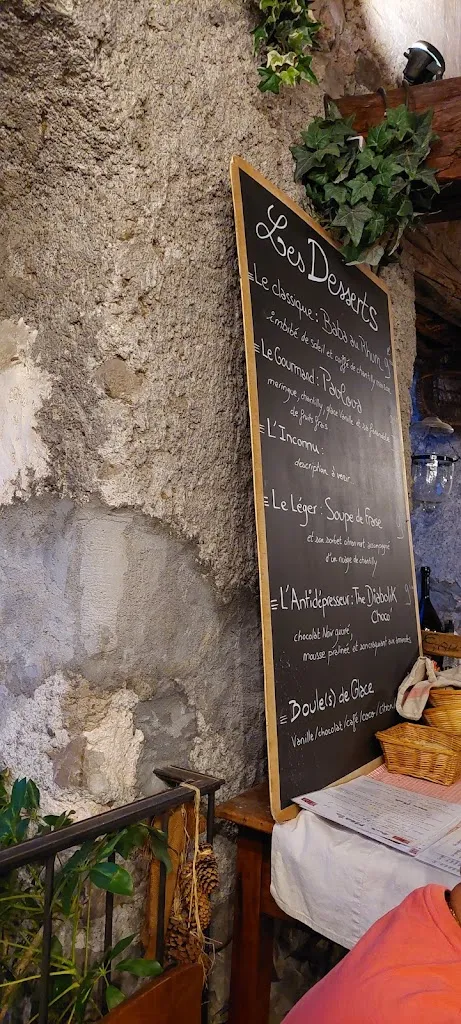 Les Desserts
Le classique : Baba au Rhum 9€
imbibé de soleil et coiffé de chantilly
Le Gourmand : Pavlova
meringue, chantilly, glace vanille et sa
de fruits frais
L'Inconnu :
description à venir...
Le Léger : Soupe de Fraise 9
et son sorbet citron vert accompagné
d'un nuage de chantilly
L'Antidépresseur : The Diabolik 9€
Choco
chocolat Noir
mousse pralinée et son croquant aux
Boule(s) de Glace
Vanille/chocolat/café/coco/citron